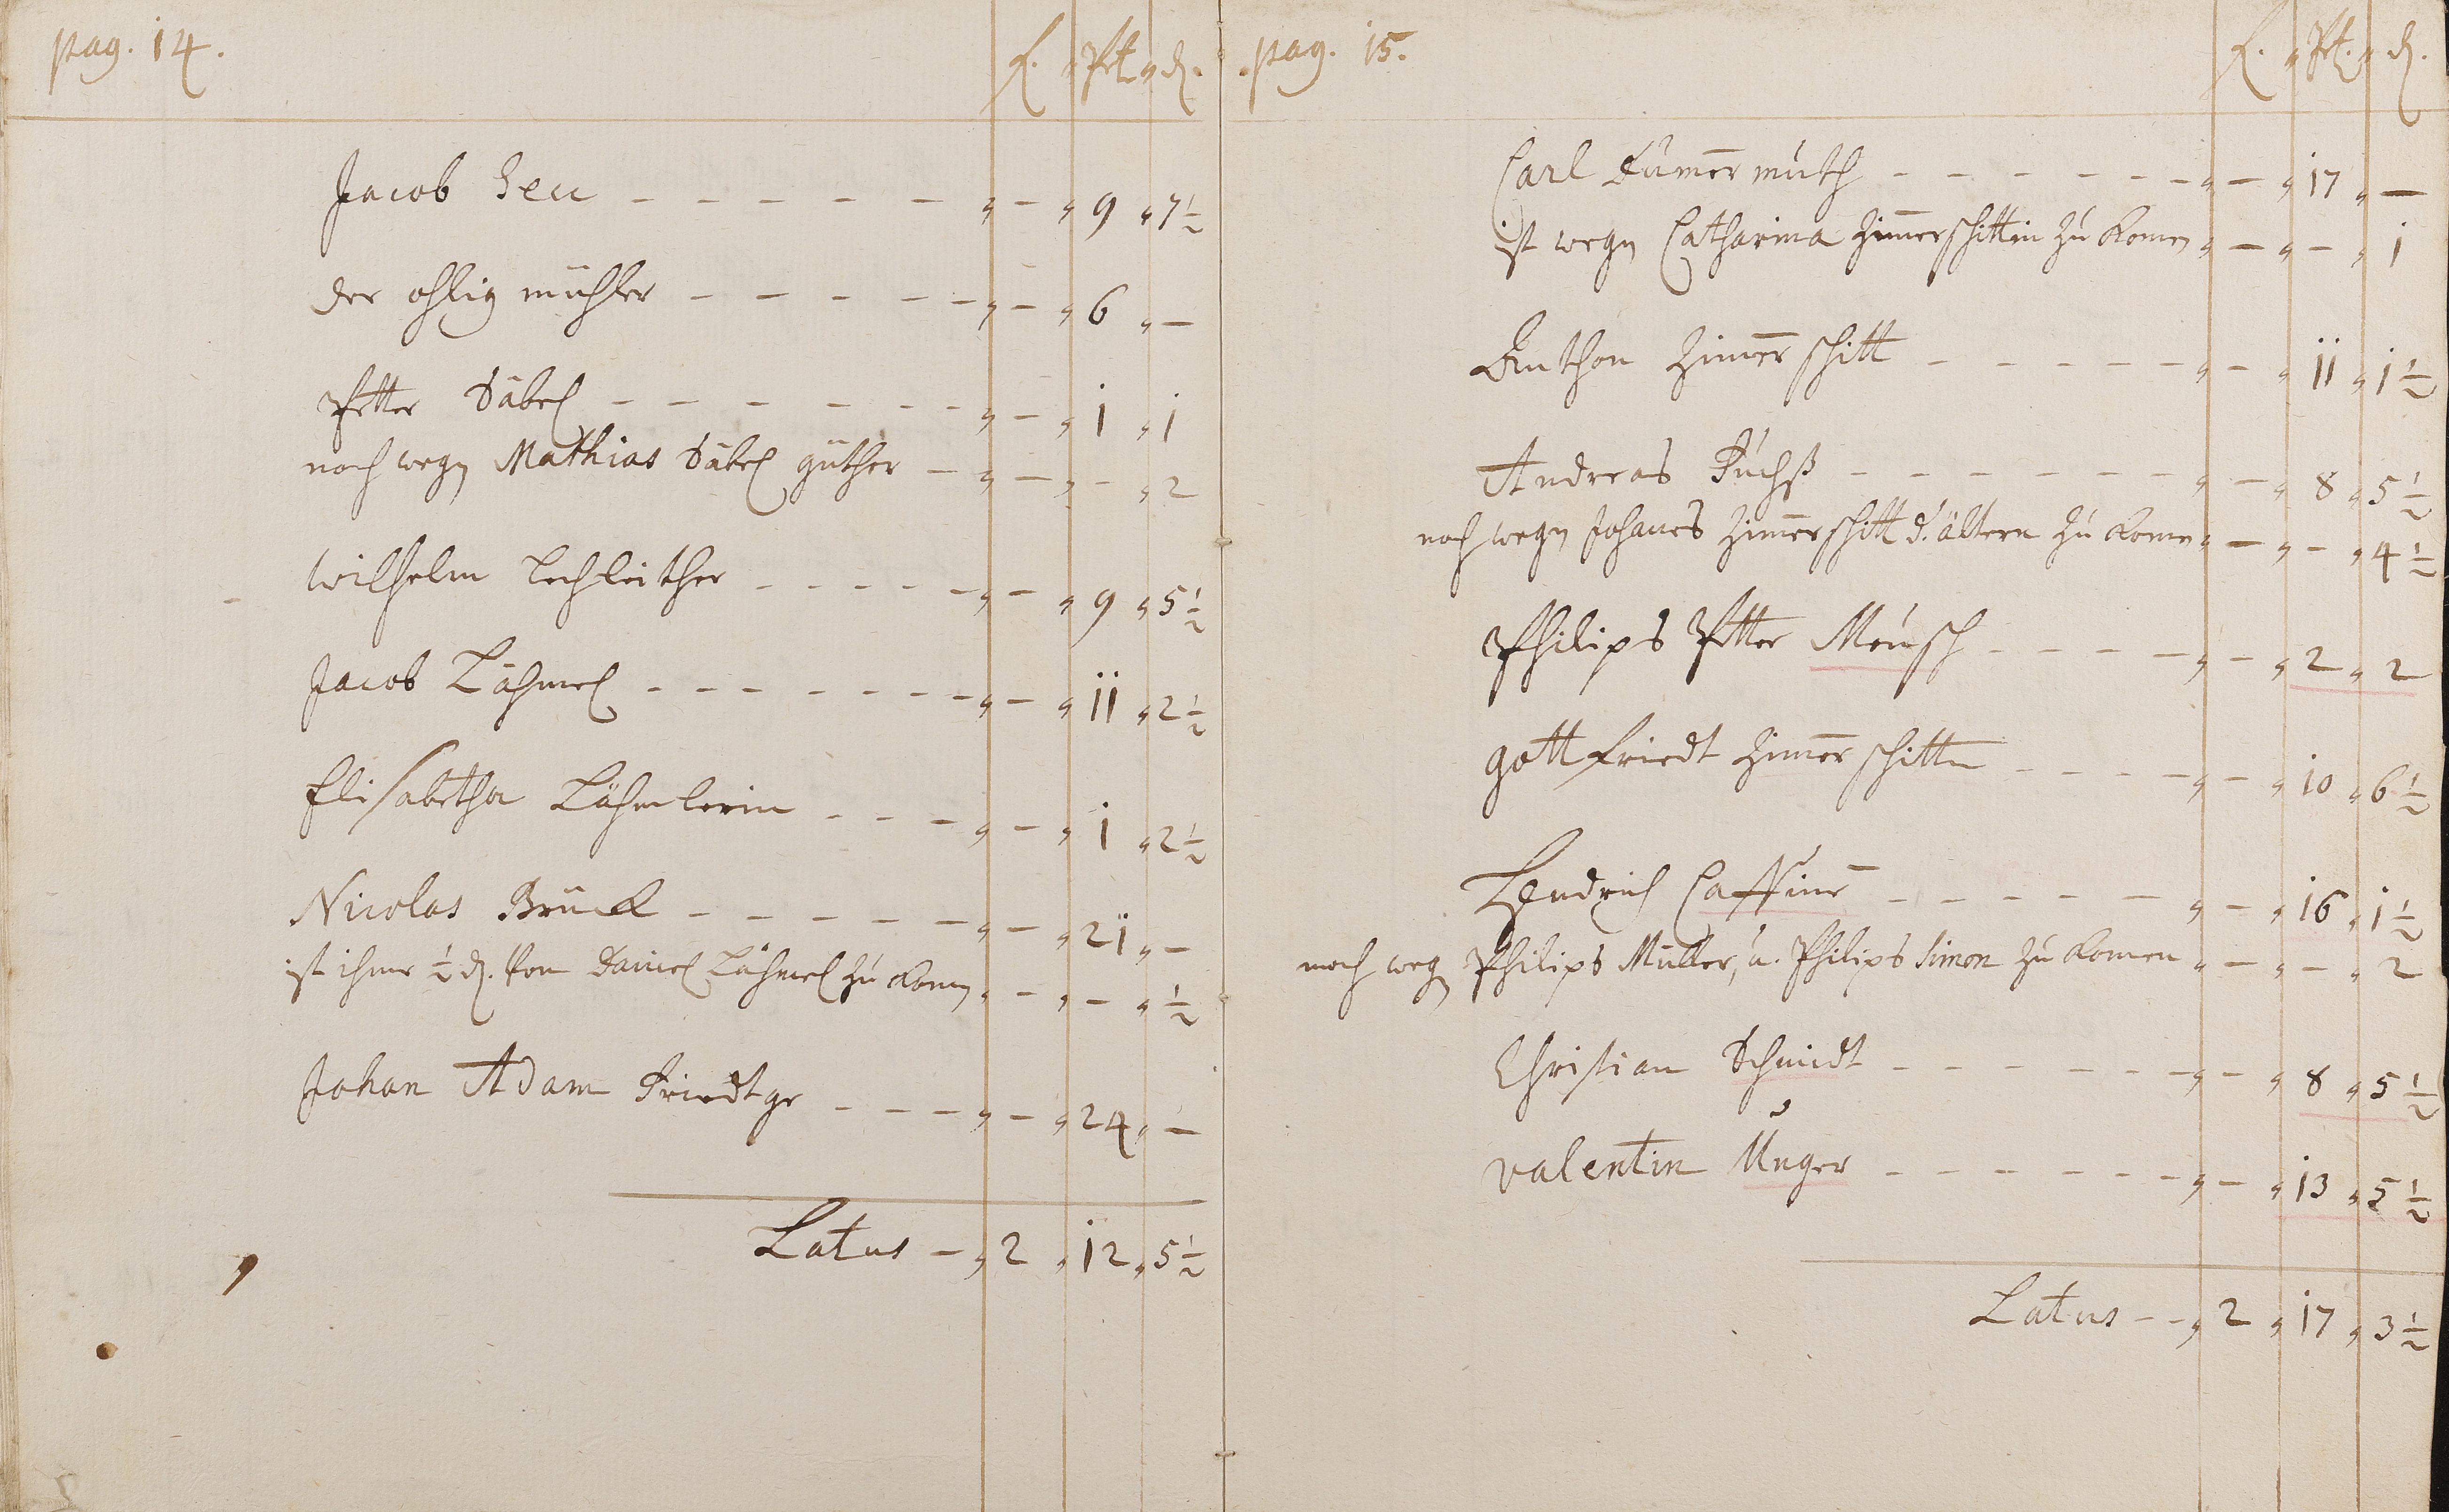 pag. 14.
fl. „ Pet. „ ₰.
Jacob Geu - - - - - - „ - „ 9 „ 7 1/2
der ohlig mühler - - - - - „ - „ 6 „ -
Petter Däbel - - - - - - „ - „ 1 „ 1
noch wegen Mathias Däbel güther - „ - „ - „ 2
Wilhelm Lechleither - - - - - „ - „ 9 „ 5 1/2
Jacob Lähmel - - - - - - - „ - „ 11 „ 2 1/2
Elisabetha Lähmlerin - - - „ - „ 1 „ 2 1/2
Nicolas Brück - - - - - „ - „ 21 „ -
ist ihme 1/2 ₰. von Daniel Lähmel zu komen „ - „ - „ 1/2
Johan Adam Friedtge - - - „ - „ 24 „ -
Latus - „ 2 „ 12 „ 5 1/2
pag. 15.
fl. „ Pet. „ ₰.
Carl Dum̄ermuth - - - - - - - „ - „ 17 „ -
ist wegen Catharina Zim̄erschittin zu komen „ - „ - „ 1
Anthon Zim̄erschitt - - - - - „ - „ 11 „ 1 1/2
Andreas Fuchß - - - - - - - „ - „ 8 „ 5 1/2
noch wegen Johanes Zim̄erschitt d. ältern zu komen „ - „ - „ 4 1/2
Philips Petter Mensch - - - - „ - „ 2 „ 2
gottfriedt Zim̄erschitten - - - - „ - „ 10 „ 6 1/2
Hendrich - - - - - „ - „ 16 „ 1 1/2
noch wegen Philips Müller, u. Philips Simon zu komen „ - „ - „ 2
Christian Schmidt - - - - - - „ - „ 8 „ 5 1/2
valentin Unger - - - - - - „ - „ 13 „ 5 1/2
Latus - - „ 2 „ 17 „ 3 1/2